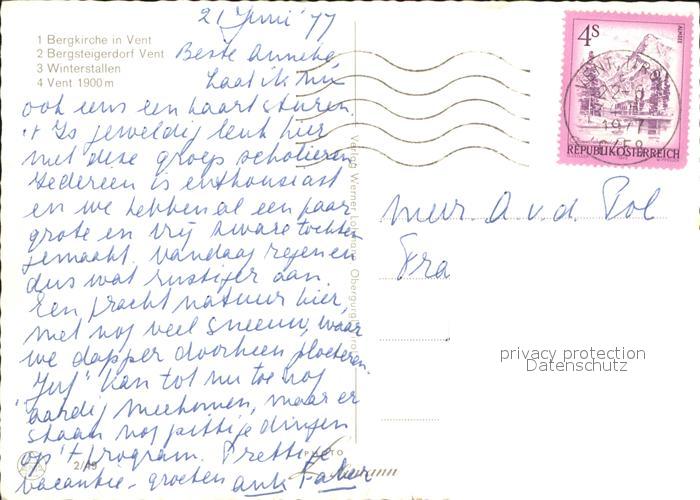 21 Juni '77
1 Bergkirche in Vent
2 Bergsteigerdorf Vent
3 Winterstallen
4 Vent 1900 m
Beste Anneke,
Laat ik nu
ook eens een kaart sturen.
't Is geweldig leuk hier
met deze groep scholieren
Iedereen is enthousiast
en we hebben al een paar
grote en vrij zware tochten
gemaakt. Vandaag regen en
dus wat rustiger aan.
Een pracht natuur hier,
met nog veel sneeuw, waar
we dapper doorheen ploeteren.
"Juf" kan tot nu toe nog
aardig meekomen, maar er
staan nog pittige dingen
op 't program. Prettige
vacantie - groeten
Verlag Werner Lohmann, Obergurgl
PHOTO
4S
ALMSEE
REPUBLIK ÖSTERREICH
VENT, TIROL
1977
Mevr. A. v. d. Pol
Fra
privacy protection
Datenschutz